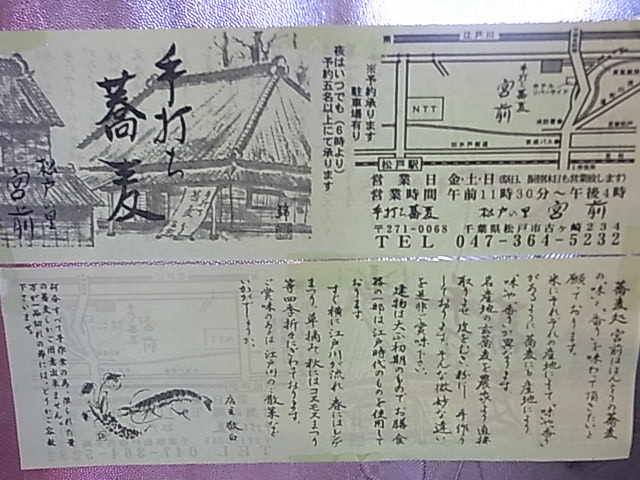 手打ち
蕎麦
松戸の里
宮前
※予約承ります
駐車場有り
夜はいつでも（6時より）
予約五名以上にて承ります
江戸川
手打ち蕎麦
宮前
NTT
旧水戸街道
松戸駅
営業日 金・土・日
営業時間 午前11時30分～午後4時
手打ち蕎麦 松戸の里 宮前
〒271-0068 千葉県松戸市古ヶ崎234
TEL 047-364-5232
蕎麦処 宮前はほんとうの蕎麦
の味・香りを味わって頂きたいと
願っております。
米にそれぞれの産地として、味や香り
があるように蕎麦にも産地により
味や香りが異なります。
名産地の玄蕎麦を農家より直接
取りよせ皮をむき、粉にし、手作り
しております。そんな微妙な違い
を是非ご賞味下さい。
建物は大正初期のものでお膳食
器の一部は江戸時代のものを使用して
おります。
すぐ横に江戸川が流れ、春にはレンゲ
まつり、草摘み、秋にはコスモスまつり
等四季折々にぎわっております。
ご賞味のあとは江戸川のご散策など
いかがでしょうか。
店主敬白